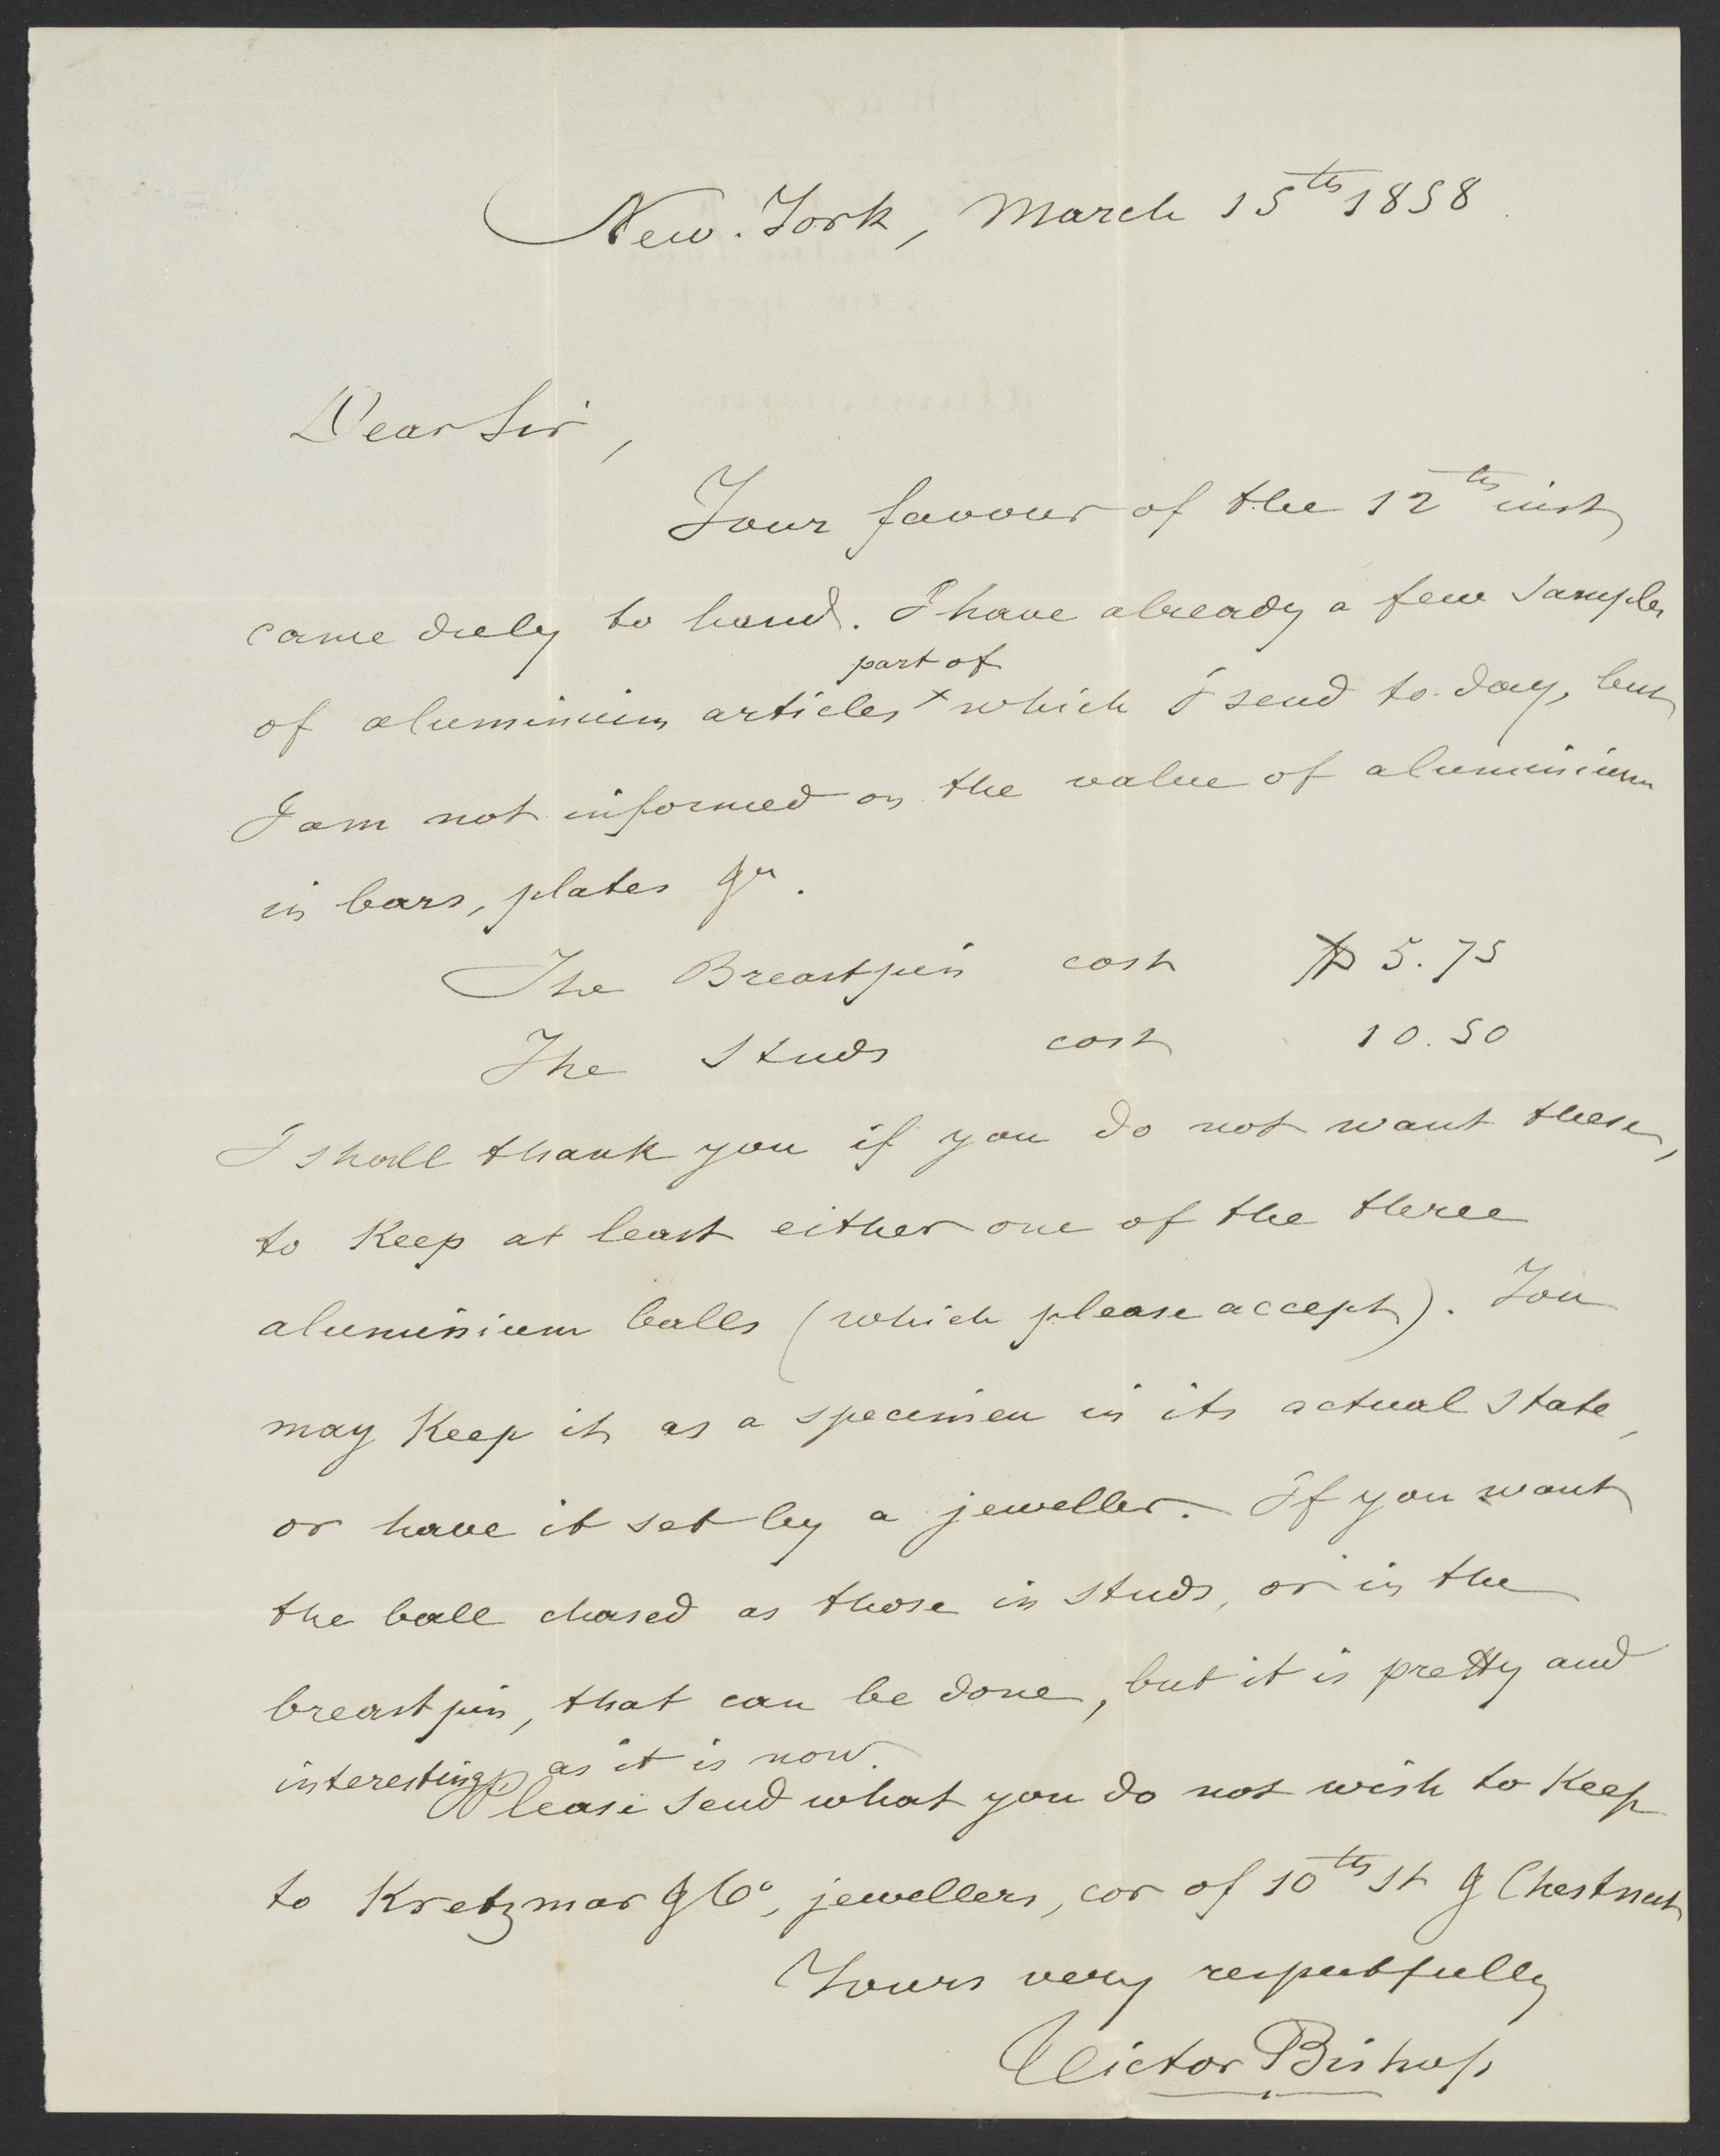 New. York, March 15th 1858
Dear Sir,
Your favour of the 12th inst
came duely to hand. I have already a few samples
part of
of aluminium articles x which I send to-day, but
I am not informed on the value of aluminium
in bars, plates &a.
The Breastpin cost $ 5.75
The Studs cost 10.50
I shall thank you if you do not want these,
to Keep at least either one of the three
aluminium balls (which please accept). You
may Keep it as a specimen in its actual state,
or have it set by a jeweller. If you want
the ball chased as those in studs, or in the
breastpin, that can be done, but it is pretty and
interesting, as it is now.
Please send what you do not wish to Keep
to Kretzmar & Co, jewellers, cor of 10th St & Chestnut
Yours very respectfully
Victor Bishop